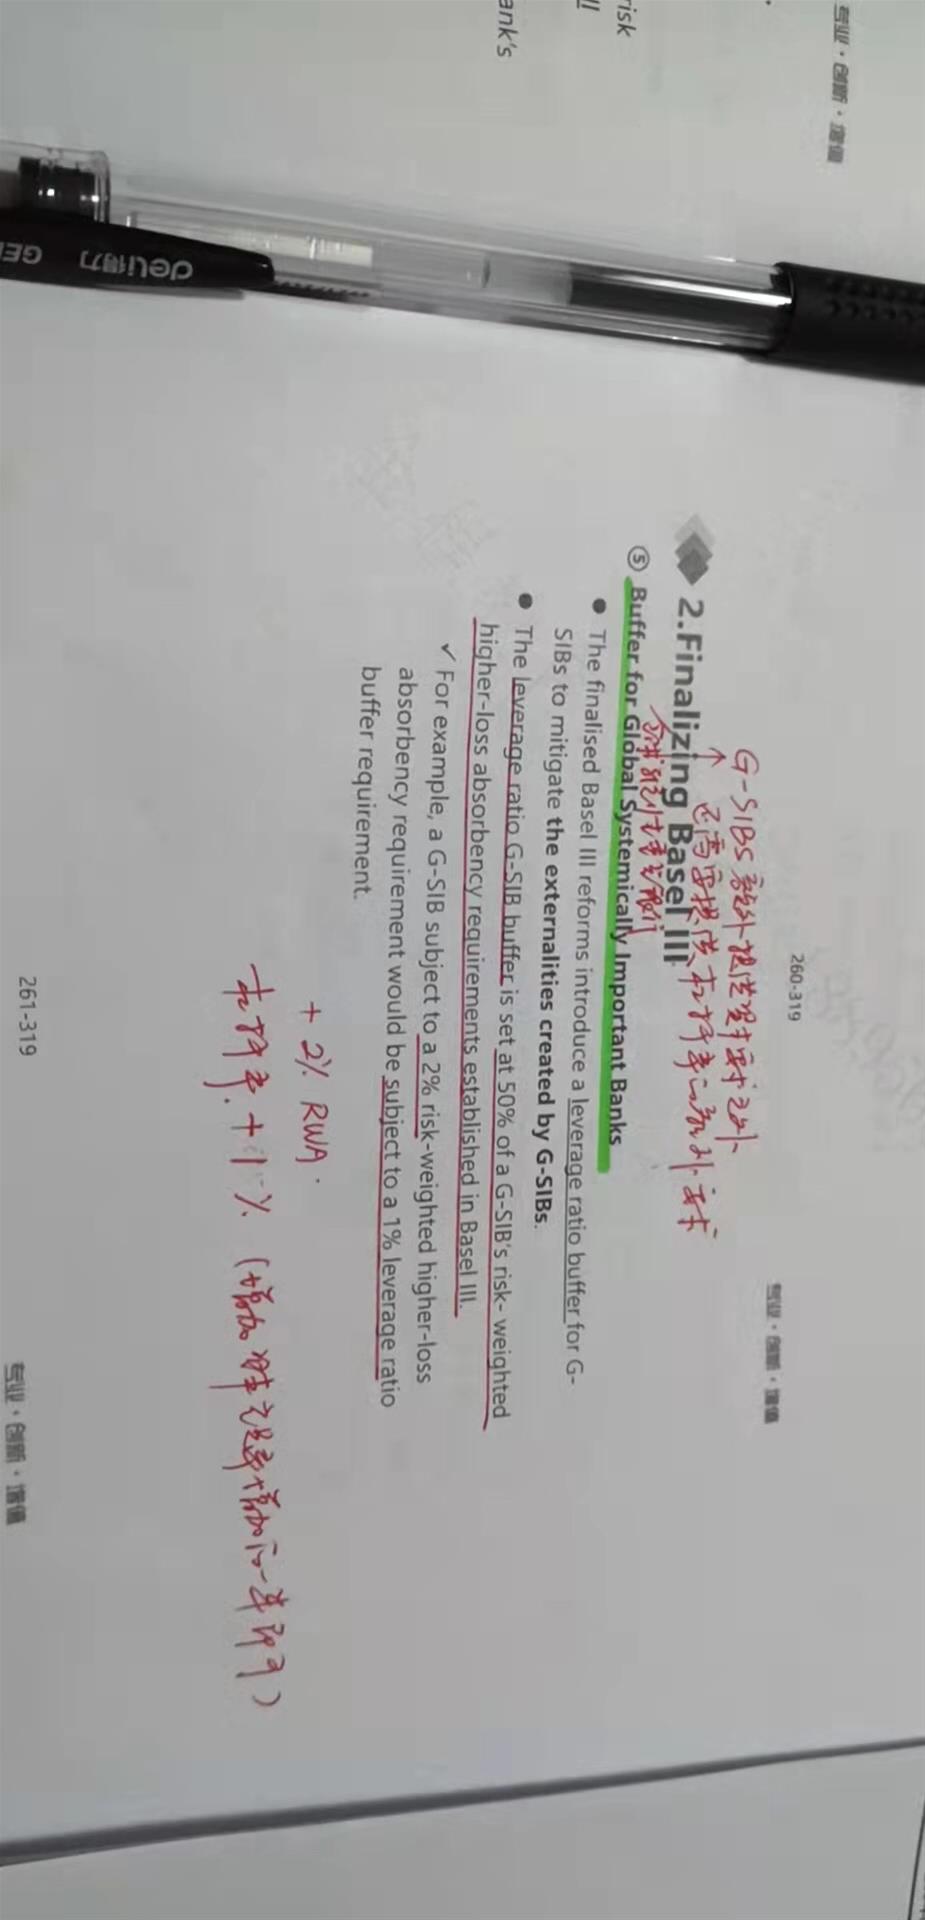 risk
ank's
专业·创新·增值
deli得力
GEL
260-319
专业·创新·增值
G-SIBs额外提供资本要求之外
↑ 还需要提供杠杆率的额外要求
2.Finalizing Basel III
全球系统重要性银行
⑤ Buffer for Global Systemically Important Banks
● The finalised Basel III reforms introduce a leverage ratio buffer for G-
SIBs to mitigate the externalities created by G-SIBs.
● The leverage ratio G-SIB buffer is set at 50% of a G-SIB's risk- weighted
higher-loss absorbency requirements established in Basel III.
✓ For example, a G-SIB subject to a 2% risk-weighted higher-loss
absorbency requirement would be subject to a 1% leverage ratio
buffer requirement.
+ 2% RWA.
杠杆率 + 1% (增加 增加的一半即可)
261-319
专业·创新·增值